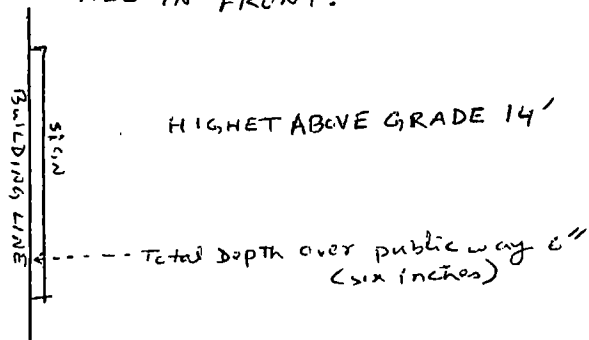 IN FRONT.
BUILDING LINE
SIGN
HIGHET ABOVE GRADE 14'
Total Depth over public way 6"
(six inches)